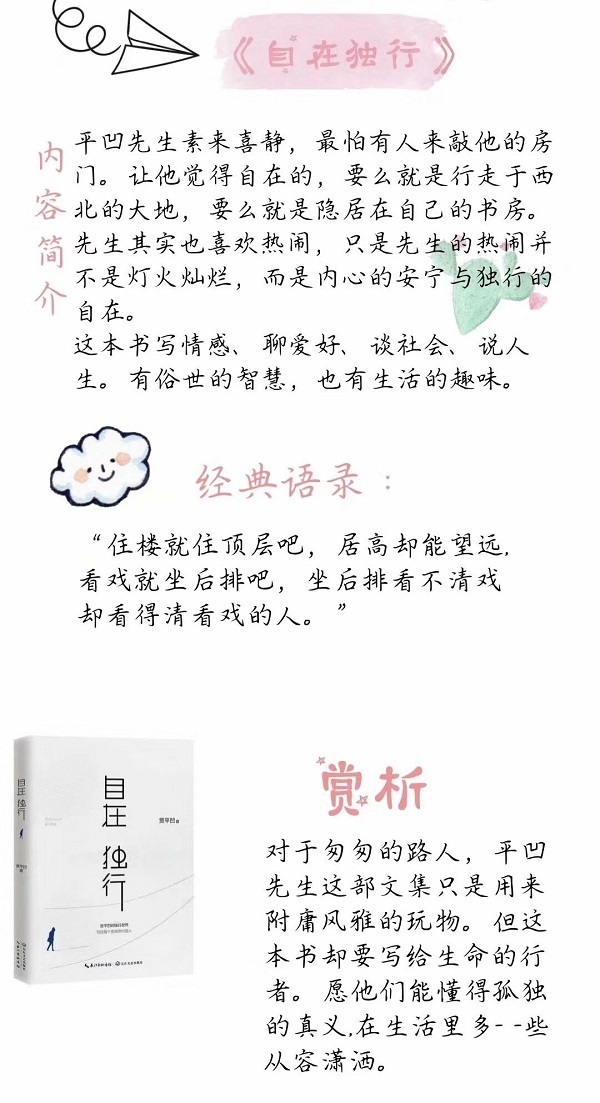 《自在独行》
内容简介
平凹先生素来喜静，最怕有人来敲他的房
门。让他觉得自在的，要么就是行走于西
北的大地，要么就是隐居在自己的书房。
先生其实也喜欢热闹，只是先生的热闹并
不是灯火灿烂，而是内心的安宁与独行的
自在。
这本书写情感、聊爱好、谈社会、说人
生。有俗世的智慧，也有生活的趣味。
经典语录：
“住楼就住顶层吧，居高却能望远.
看戏就坐后排吧，坐后排看不清戏
却看得清看戏的人。”
自在
独行
贾平凹 著
自在独行
赏析
对于匆匆的路人，平凹
先生这部文集只是用来
附庸风雅的玩物。但这
本书却要写给生命的行
者。愿他们能懂得孤独
的真义.在生活里多--些
从容潇洒。